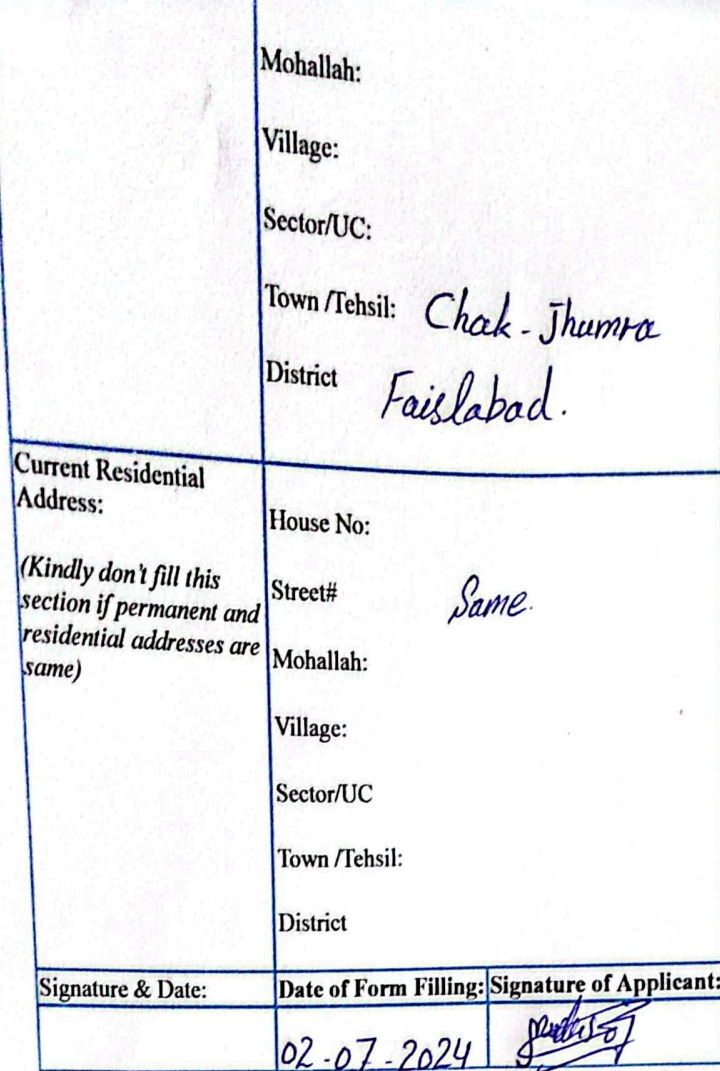 Mohallah:
Village:
Sector/UC:
Town /Tehsil: Chak - Jhumra
District Faislabad.
Current Residential
Address:
(Kindly don't fill this
section if permanent and
residential addresses are
same)
House No:
Street# Same.
Mohallah:
Village:
Sector/UC
Town /Tehsil:
District
Signature & Date: Date of Form Filling: Signature of Applicant:
02-07-2024